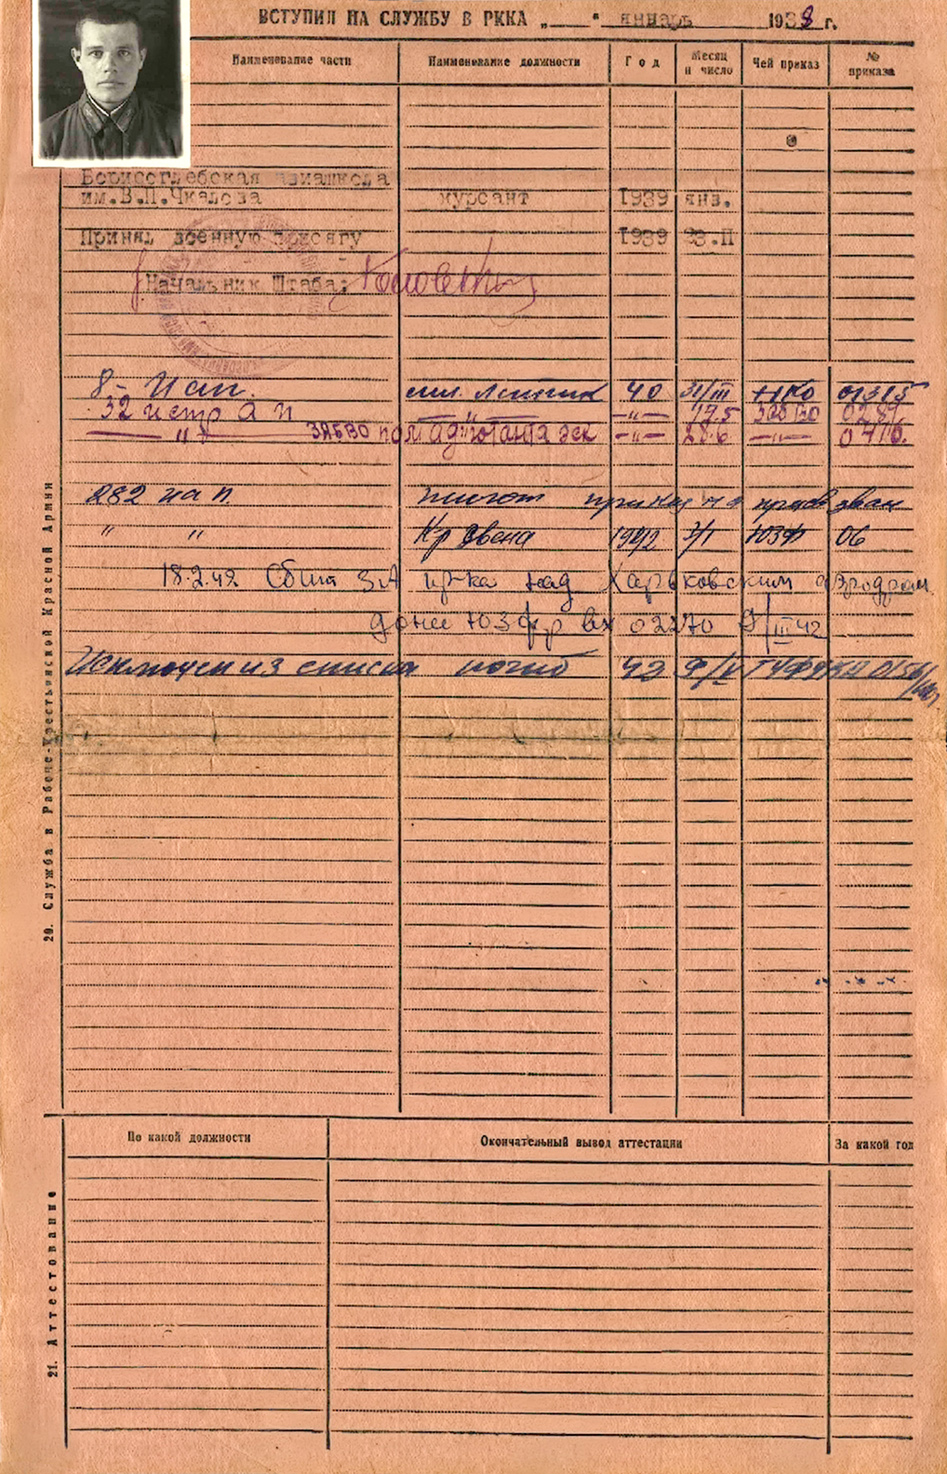 ВСТУПИЛ НА СЛУЖБУ В РККА „ “ январь 1938 г.
Наименование части Наименование должности Год Месяц и число Чей приказ № приказа
Борисоглебская авиашкола
им.В.П.Чкалова курсант 1939 янв.
Принял военную присягу 1939 23.П
Начальник Штаба:
8- Иап мл. летчик 40 31/III НКО 01315
32 истр а п —"— —"— 17.5 ЗабВО
—"— ЗАБВО пом адъютанта эск —"— 28.6 —"—
282 иап пилот
" " Кр звена 1942 3/I ЮЗФ 06
18.2.42 Сбит ЗА пр-ка над Харьковским аэродром
донес ЮЗфр вх 02270 9/III 42
Исключен из списка погиб 42
20. Служба в Рабоче-Крестьянской Красной Армии
По какой должности Окончательный вывод аттестации За какой год
21. Аттестование